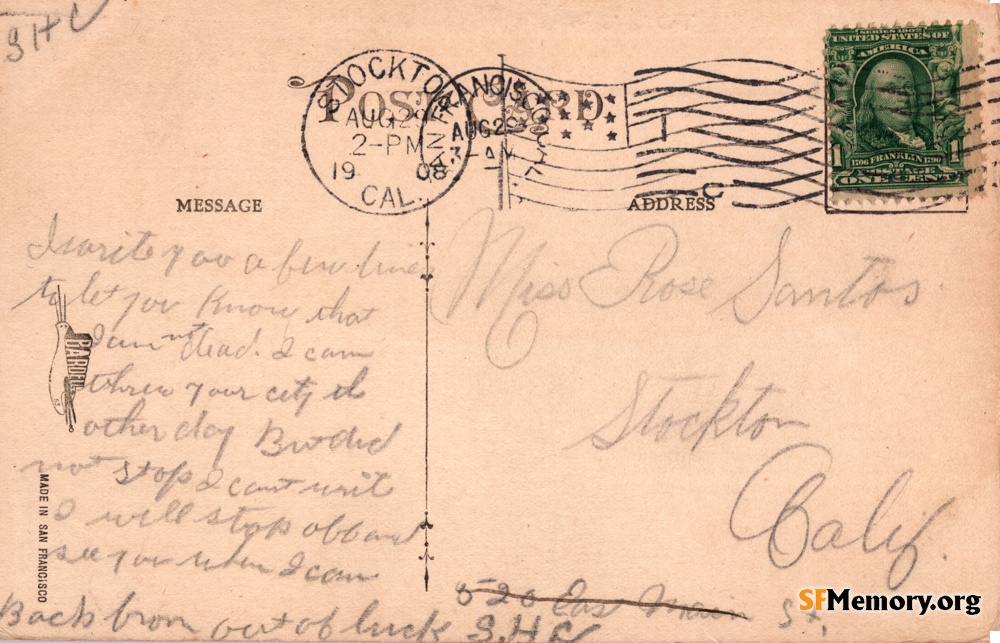 SHC
POST CARD
STOCKTON
AUG 29
2-PM
19 08
CAL.
SAN FRANCISCO, CAL.
AUG 29
3-AM
SERIES 1902
UNITED STATES OF
AMERICA
1 1706 FRANKLIN 1790 1
POSTAGE
ONE CENT
MESSAGE
ADDRESS
I write you a few lines
to let you Know that
I am not dead. I came
threw your city the
other day But did
not stop I cant write
I will stop off and
see you when I come
Back from out of luck
S.H.C
BARDELL
MADE IN SAN FRANCISCO
Miss Rose Santos
Stockton
Calif.
520 East Main St,
SFMemory.org